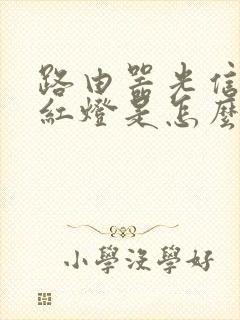 路由器光信
紅燈是怎麼
小學沒學好